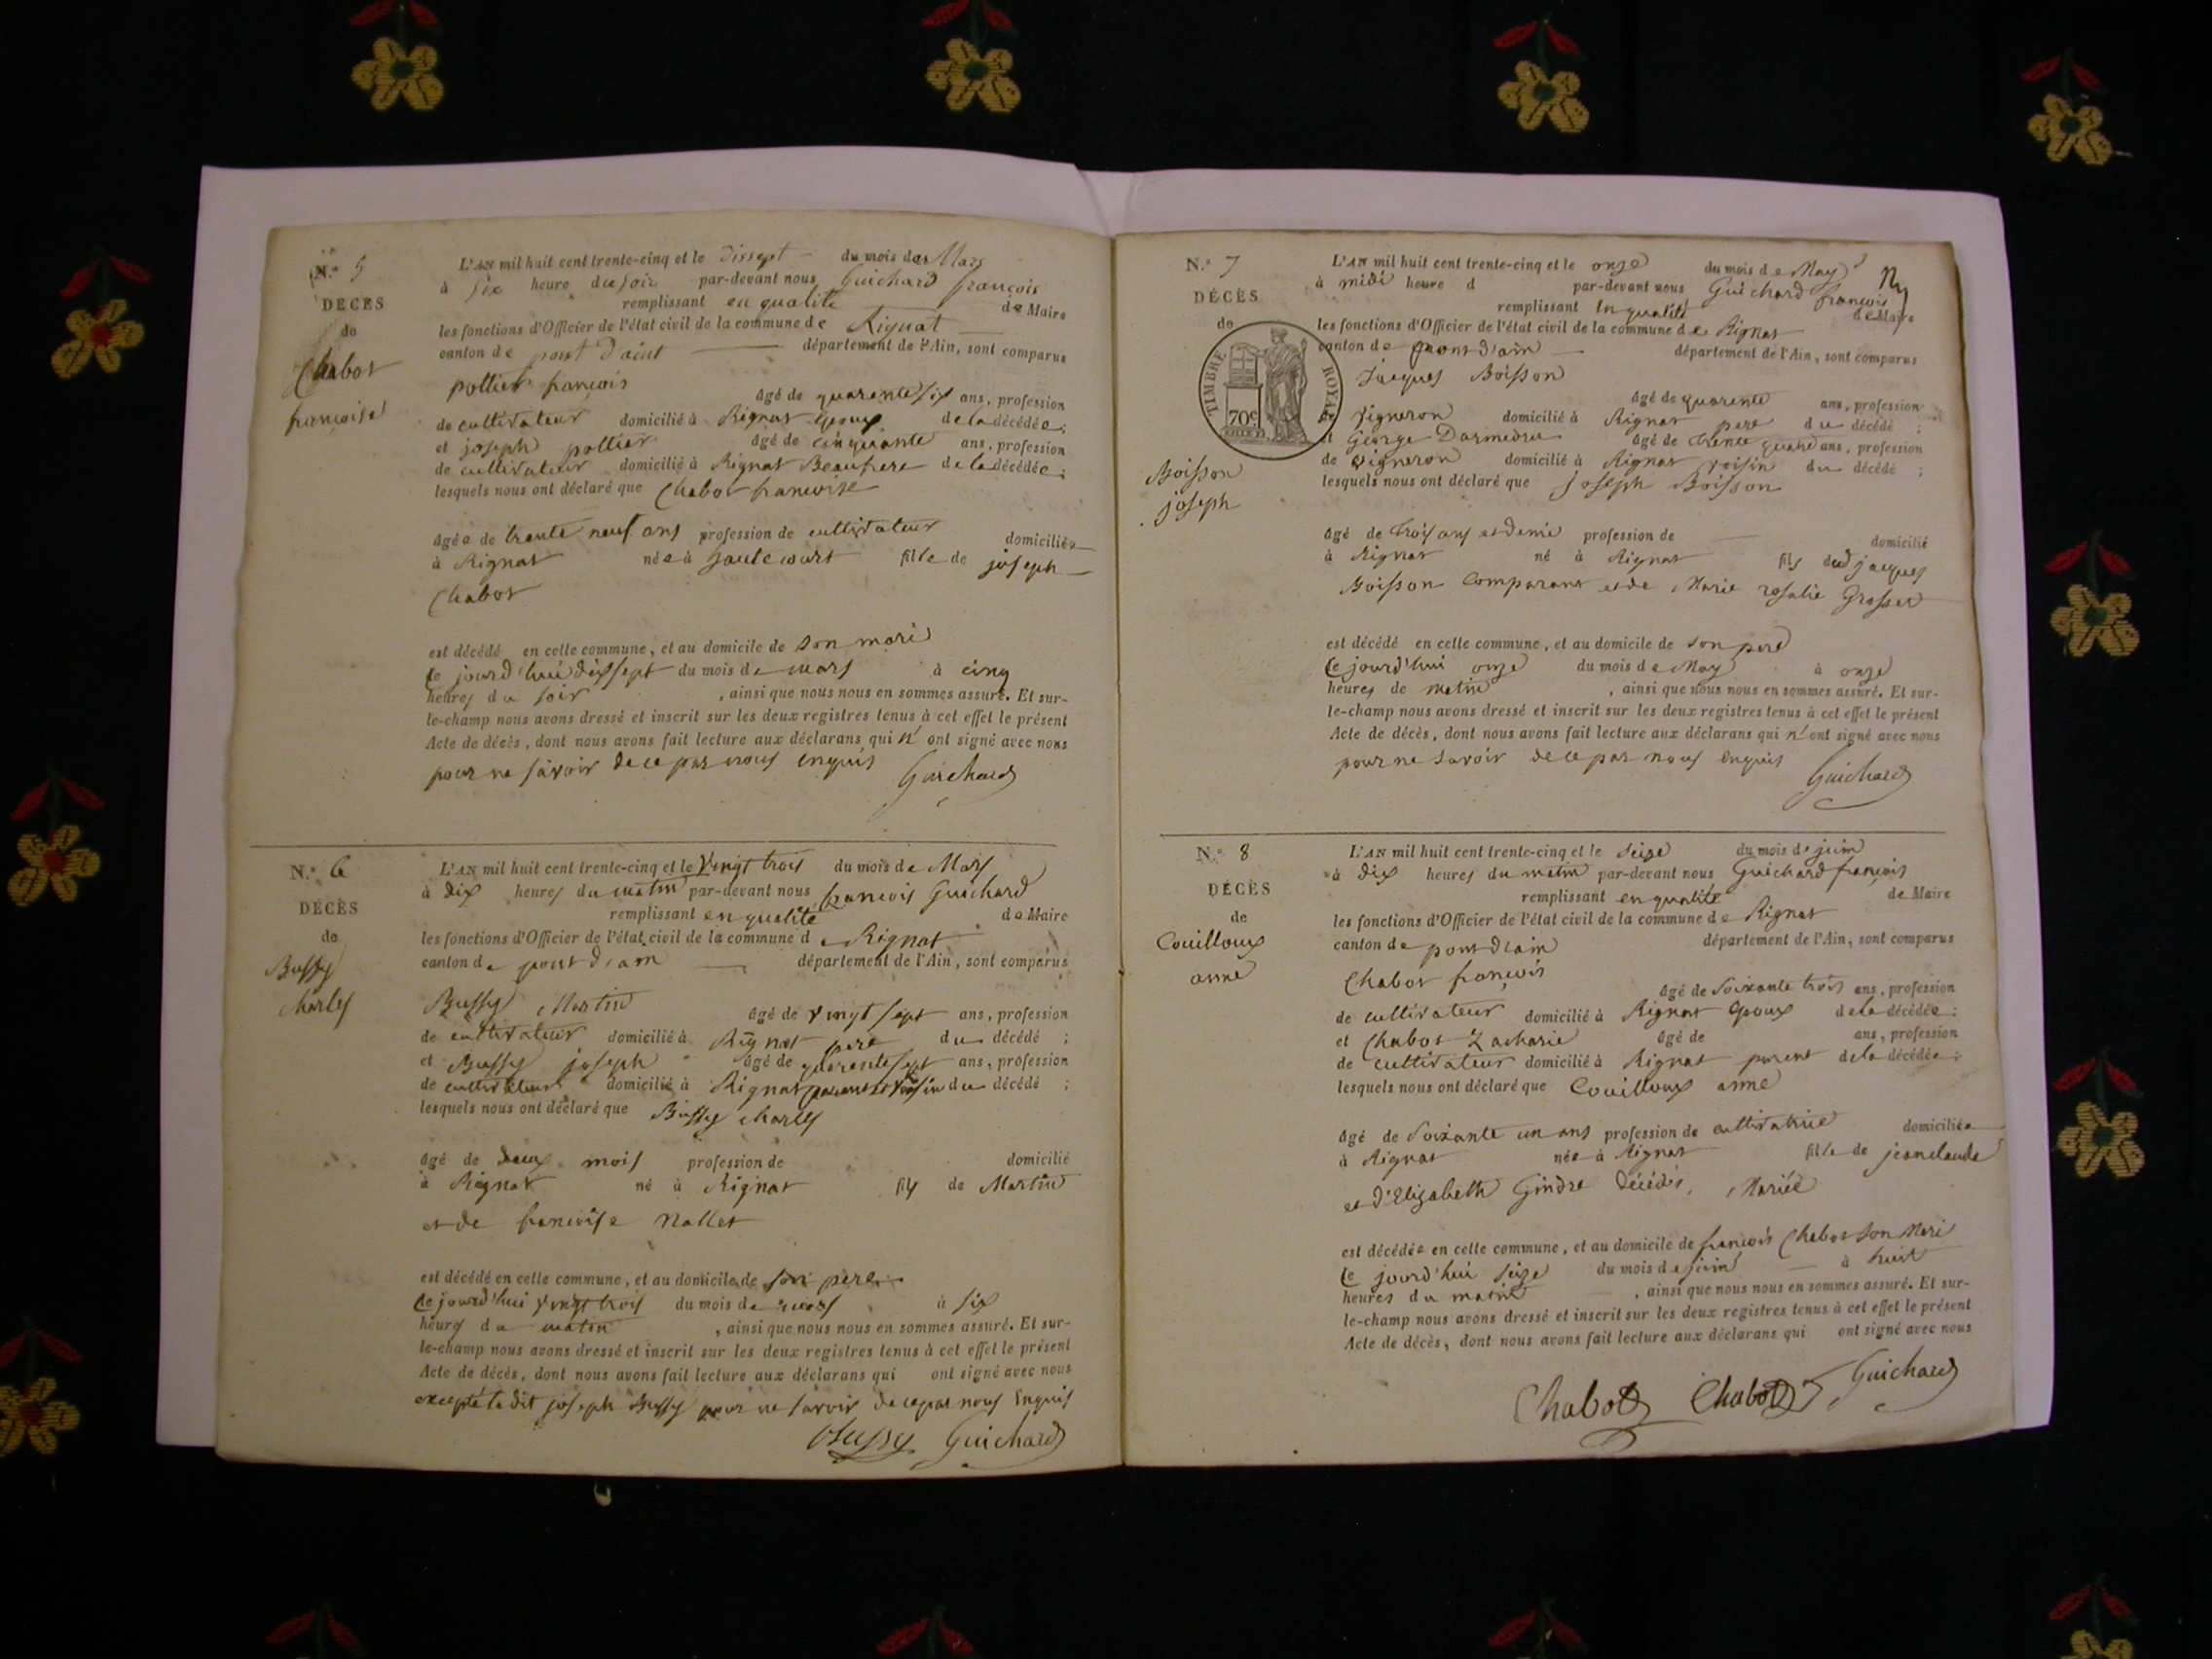 N.° 5
DÉCÈS
de
Chabot
françoise
L'AN mil huit cent trente-cinq et le dissept du mois de Mars
à six heure du soir par-devant nous Guichard françois
remplissant en qualité de Maire
les fonctions d'Officier de l'état civil de la commune de Rignat
canton de pont d'aint département de l'Ain, sont comparus
pottier françois
âgé de quarente six ans, profession
de cultivateur domicilié à Rignat Epoux de la décédée;
et joseph pottier âgé de cinquante ans, profession
de cultivateur domicilié à Rignat Beaufrere de la décédée;
lesquels nous ont déclaré que Chabot francoise
âgée de trente neuf ans profession de cultivateur domiciliée
à Rignat née à hautecourt fille de joseph
Chabot
est décédé en cette commune, et au domicile de son mari
Ce jourd'hui dixsept du mois de mars à cinq
heures du soir, ainsi que nous nous en sommes assuré. Et sur-
le-champ nous avons dressé et inscrit sur les deux registres tenus à cet effet le présent
Acte de décès, dont nous avons fait lecture aux déclarans qui n'ont signé avec nous
pour ne savoir de ce par nous enquis Guichard
N.° 6
DÉCÈS
de
Bussy
charles
L'AN mil huit cent trente-cinq et le Vingt trois du mois de Mars
à dix heures du matin par-devant nous françois Guichard
remplissant en qualité de Maire
les fonctions d'Officier de l'état civil de la commune de Rignat
canton de pont d'ain département de l'Ain, sont comparus
Bussy Martin
âgé de vingt sept ans, profession
de cultivateur domicilié à Rignat pere du décédé;
et Bussy joseph âgé de quarente sept ans, profession
de cultivateur domicilié à Rignat parent et voisin du décédé;
lesquels nous ont déclaré que Bussy charles
âgé de deux mois profession de domicilié
à Rignat né à Rignat fils de Martin
et de francoise Nallet
est décédé en cette commune, et au domicile de son pere
Ce jourd'hui vingt trois du mois de mars à six
heures du matin, ainsi que nous nous en sommes assuré. Et sur-
le-champ nous avons dressé et inscrit sur les deux registres tenus à cet effet le présent
Acte de décès, dont nous avons fait lecture aux déclarans qui ont signé avec nous
excepté le dit joseph Bussy pour ne savoir de ce par nous Enquis
Bussy Guichard
N.° 7
DÉCÈS
de
TIMBRE ROYAL
70c
Boisson
joseph
L'AN mil huit cent trente-cinq et le onze du mois de May
à midi heure d par-devant nous Guichard françois
remplissant In qualité de Maire
les fonctions d'Officier de l'état civil de la commune de Rignat
canton de pont d'ain département de l'Ain, sont comparus
Jacques Boisson
âgé de quarente ans, profession
vigneron domicilié à Rignat pere du décédé;
et George Darmedru âgé de trente quatre ans, profession
de vigneron domicilié à Rignat voisin du décédé;
lesquels nous ont déclaré que joseph Boisson
âgé de trois ans et demi profession de domicilié
à Rignat né à Rignat fils de jacques
Boisson Comparant et de Marie rosalie Grosset
est décédé en cette commune, et au domicile de son pere
Ce jourd'hui onze du mois de May à onze
heures de matin, ainsi que nous nous en sommes assuré. Et sur-
le-champ nous avons dressé et inscrit sur les deux registres tenus à cet effet le présent
Acte de décès, dont nous avons fait lecture aux déclarans qui n'ont signé avec nous
pour ne savoir de ce par nous Enquis Guichard
N.° 8
DÉCÈS
de
Couilloux
anne
L'AN mil huit cent trente-cinq et le seize du mois de juin
à dix heures du matin par-devant nous Guichard françois
remplissant en qualité de Maire
les fonctions d'Officier de l'état civil de la commune de Rignat
canton de pont d'ain département de l'Ain, sont comparus
Chabot françois
âgé de soixante trois ans, profession
de cultivateur domicilié à Rignat Epoux de la décédée;
et Chabot Zacharie âgé de ans, profession
de cultivateur domicilié à Rignat parent de la décédée;
lesquels nous ont déclaré que Couilloux anne
âgé de soixante un ans profession de cultivatrice domiciliée
à Rignat née à Rignat fille de jeanclaude
et d'Elizabeth Gindre décédés, Mariée
est décédée en cette commune, et au domicile de françois Chabot son Mari
Ce jourd'hui seize du mois de juin à huit
heures du matin, ainsi que nous nous en sommes assuré. Et sur-
le-champ nous avons dressé et inscrit sur les deux registres tenus à cet effet le présent
Acte de décès, dont nous avons fait lecture aux déclarans qui ont signé avec nous
Chabot Chabot Guichard